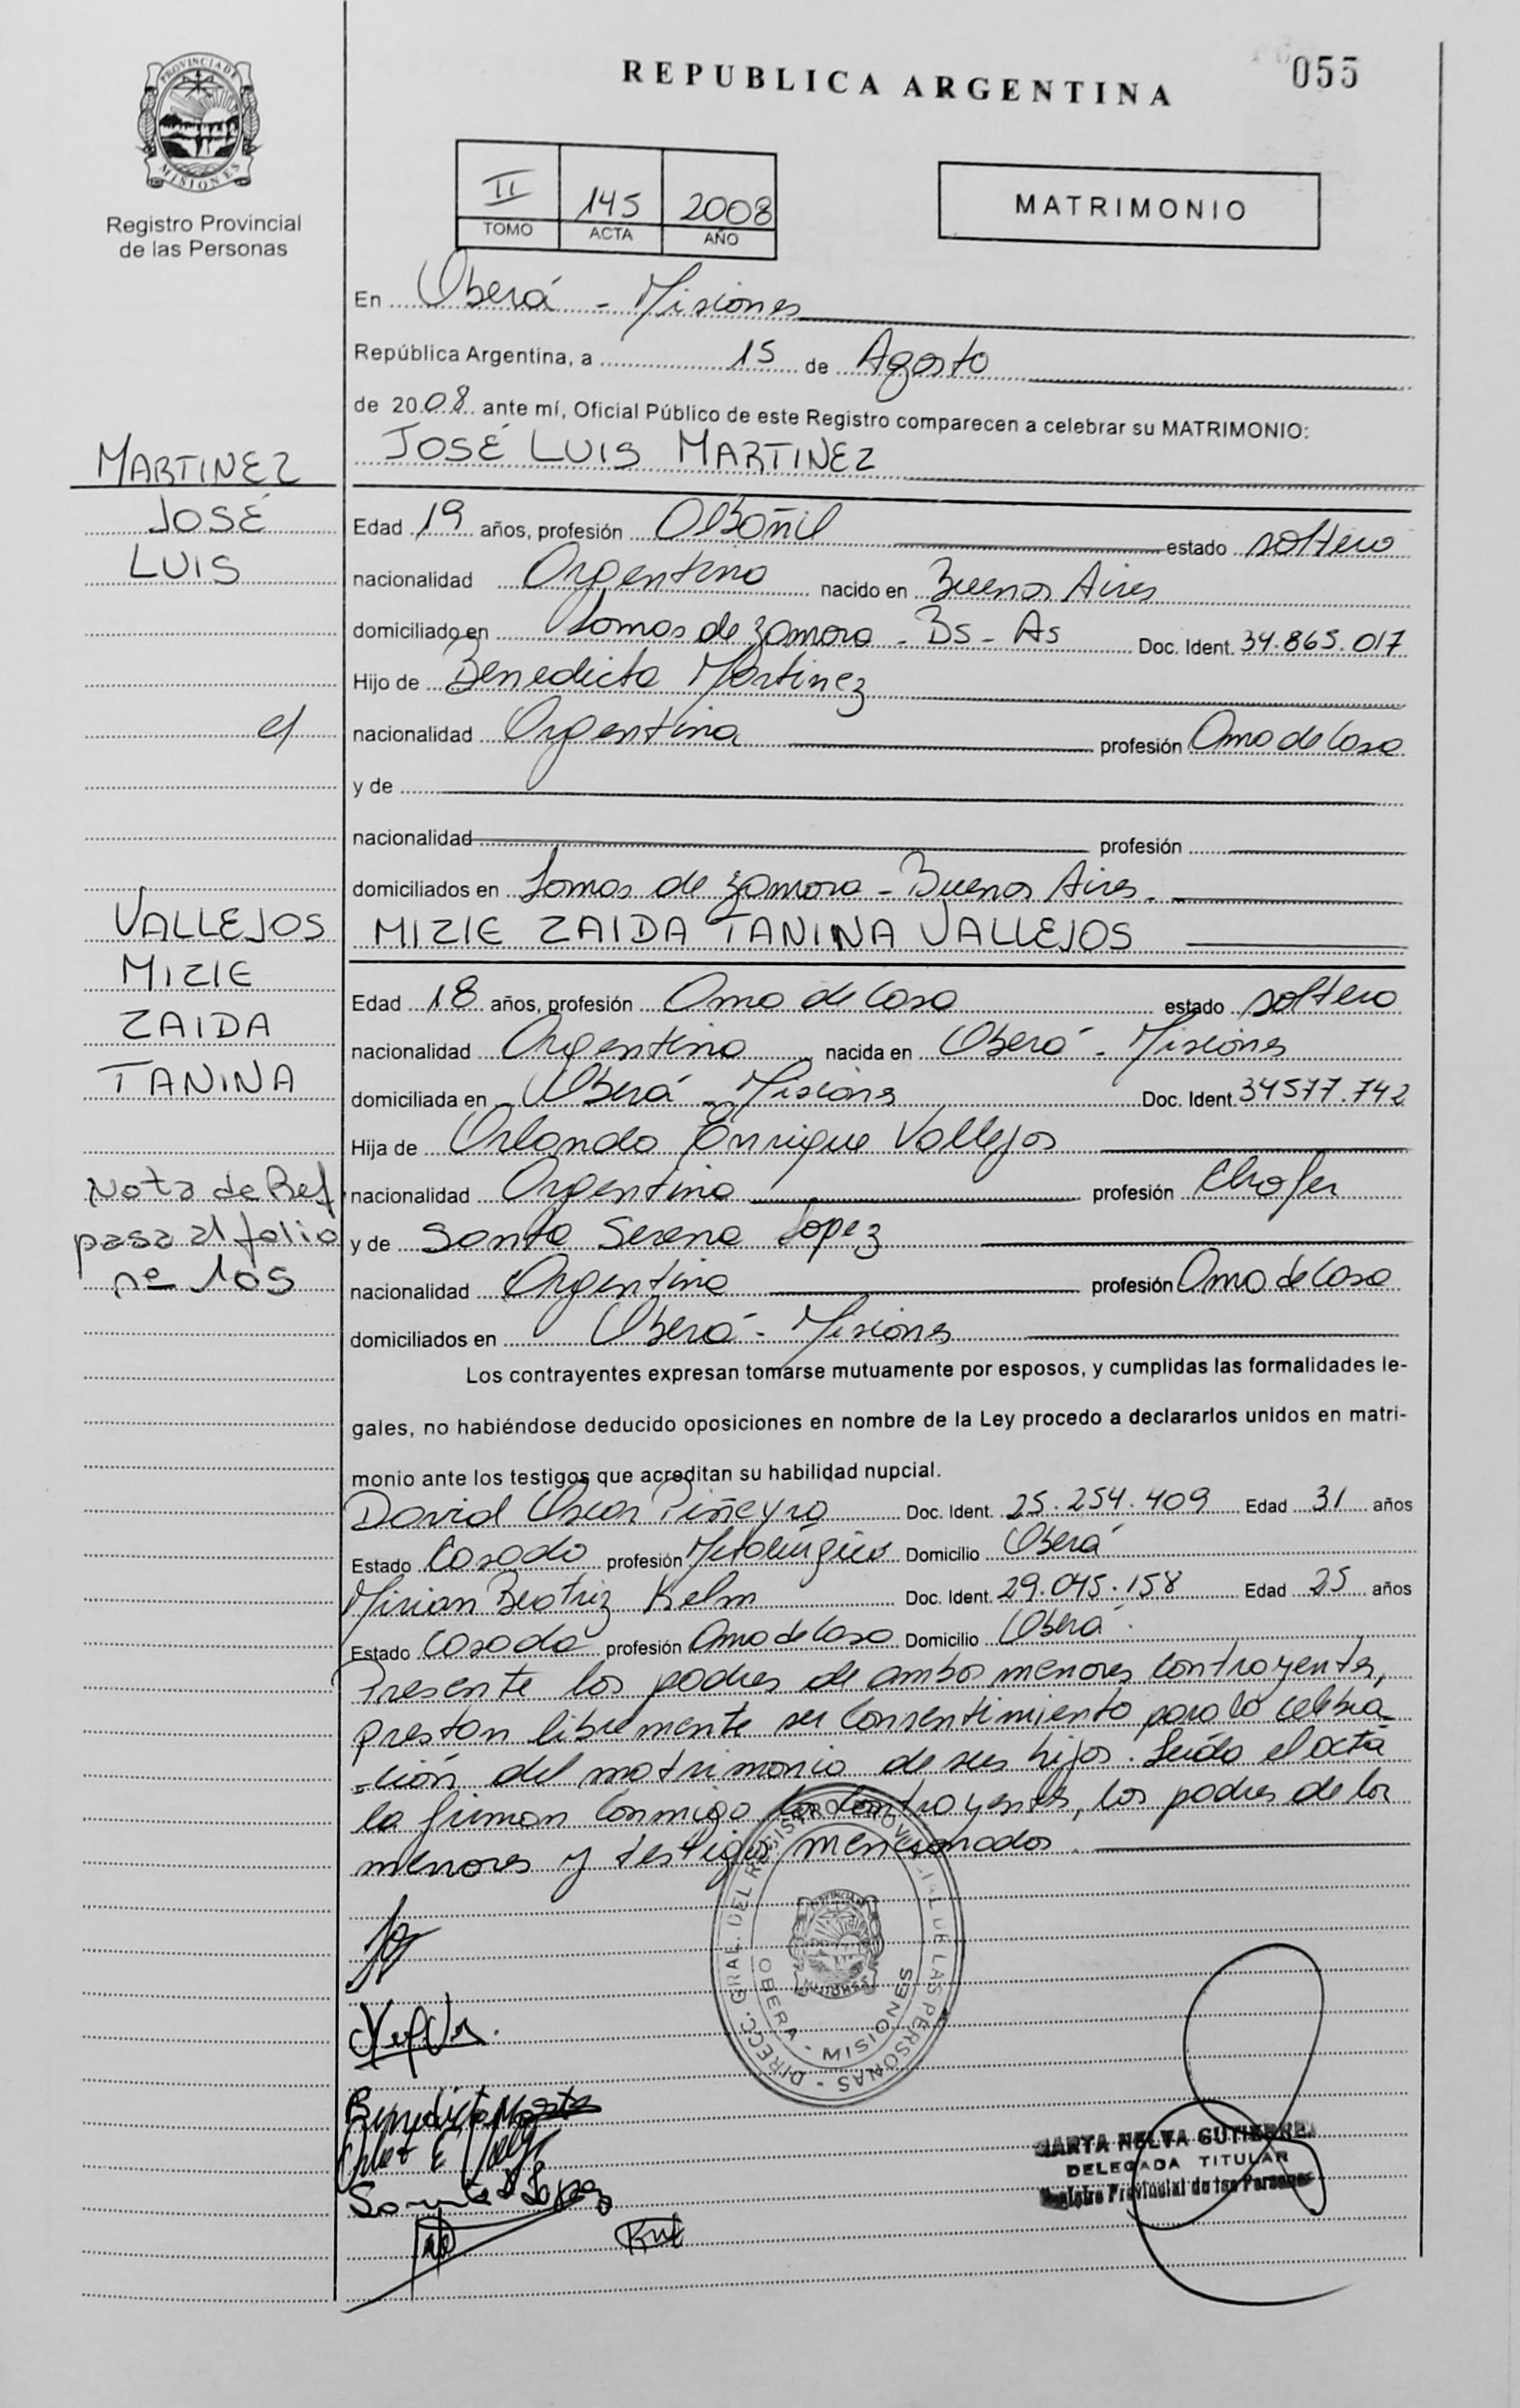 REPUBLICA ARGENTINA
055
PROVINCIA DE
MISIONES
Registro Provincial
de las Personas
II 145 2008
TOMO ACTA AÑO
MATRIMONIO
En Oberá - Misiones
República Argentina, a 15 de Agosto
de 2008 ante mí, Oficial Público de este Registro comparecen a celebrar su MATRIMONIO:
JOSÉ LUIS MARTINEZ
MARTINEZ
JOSÉ
LUIS
Edad 19 años, profesión Albañil estado soltero
nacionalidad Argentina nacido en Buenos Aires
domiciliado en Lomas de Zamora - Bs - As Doc. Ident. 34.865.017
Hijo de Benedicta Martinez
nacionalidad Argentina profesión Ama de Casa
y de
nacionalidad profesión
domiciliados en Lomas de Zamora - Buenos Aires.
MIZIE ZAIDA TANINA VALLEJOS
VALLEJOS
MIZIE
ZAIDA
TANINA
Edad 18 años, profesión Ama de Casa estado soltera
nacionalidad Argentina nacida en Oberá - Misiones
domiciliada en Oberá - Misiones Doc. Ident. 34577.742
Hija de Orlando Enrique Vallejos
nacionalidad Argentina profesión Chofer
y de Santa Serena Lopez
nacionalidad Argentina profesión Ama de Casa
domiciliados en Oberá - Misiones
Nota de Ref
pasa al folio
nº 105
Los contrayentes expresan tomarse mutuamente por esposos, y cumplidas las formalidades le-
gales, no habiéndose deducido oposiciones en nombre de la Ley procedo a declararlos unidos en matri-
monio ante los testigos que acreditan su habilidad nupcial.
David Oscar Piñeyro Doc. Ident. 25.254.409 Edad 31 años
Estado Casado profesión Metalúrgico Domicilio Oberá
Mirian Beatriz Kelm Doc. Ident. 29.045.158 Edad 25 años
Estado Casada profesión Ama de Casa Domicilio Oberá.
Presente los padres de ambos menores contrayentes,
prestan libremente su consentimiento para la celebra-
-ción del matrimonio de sus hijos. Leída el acta
la firman conmigo los contrayentes, los padres de los
menores y testigos mencionados.
DIRECC. GRAL. DEL REGISTRO PROVINCIAL DE LAS PERSONAS
OBERA - MISIONES
Benedicta
MARTA NELVA GUTIERREZ
DELEGADA TITULAR
Registro Provincial de las Personas